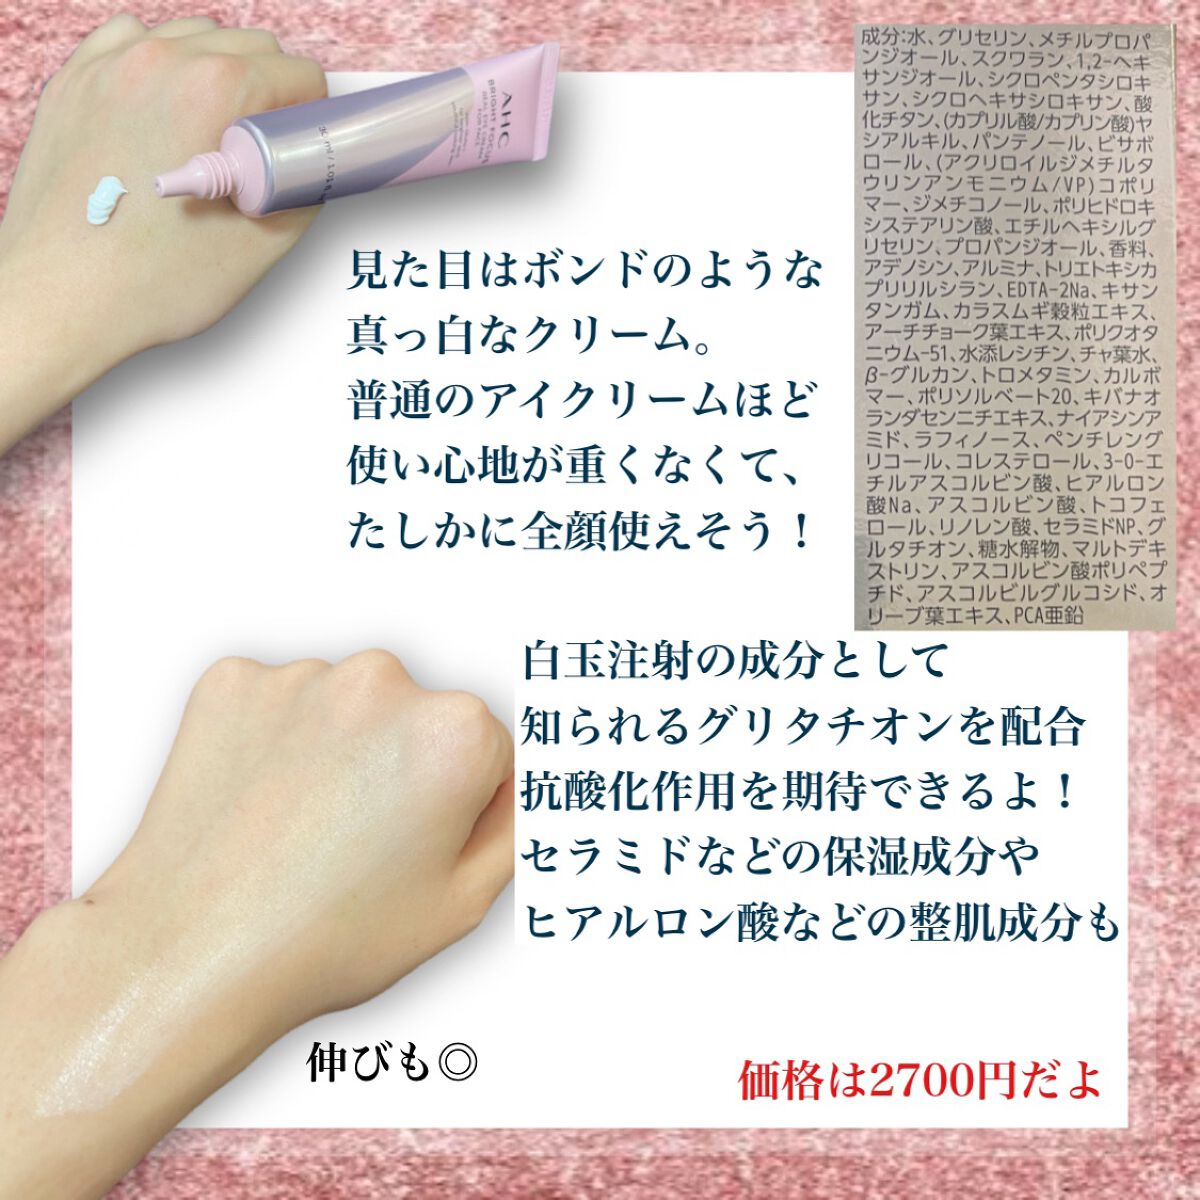 AHC
BRIGHT FOCUS
REAL EYE CREAM
FOR FACE
30 ml / 1.01 fl
成分:水、グリセリン、メチルプロパ
ンジオール、スクワラン、1,2-ヘキ
サンジオール、シクロペンタシロキ
サン、シクロヘキサシロキサン、酸
化チタン、(カプリル酸/カプリン酸)ヤ
シアルキル、パンテノール、ビサボ
ロール、(アクリロイルジメチルタ
ウリンアンモニウム/VP)コポリ
マー、ジメチコノール、ポリヒドロキ
システアリン酸、エチルヘキシルグ
リセリン、プロパンジオール、香料、
アデノシン、アルミナ、トリエトキシカ
プリリルシラン、EDTA-2Na、キサン
タンガム、カラスムギ穀粒エキス、
アーチチョーク葉エキス、ポリクオタ
ニウム-51、水添レシチン、チャ葉水、
β-グルカン、トロメタミン、カルボ
マー、ポリソルベート20、キバナオ
ランダセンニチエキス、ナイアシンア
ミド、ラフィノース、ペンチレング
リコール、コレステロール、3-O-エ
チルアスコルビン酸、ヒアルロン
酸Na、アスコルビン酸、トコフェ
ロール、リノレン酸、セラミドNP、グ
ルタチオン、糖水解物、マルトデキ
ストリン、アスコルビン酸ポリペプ
チド、アスコルビルグルコシド、オ
リーブ葉エキス、PCA亜鉛
見た目はボンドのような
真っ白なクリーム。
普通のアイクリームほど
使い心地が重くなくて、
たしかに全顔使えそう！
白玉注射の成分として
知られるグリタチオンを配合
抗酸化作用を期待できるよ！
セラミドなどの保湿成分や
ヒアルロン酸などの整肌成分も
伸びも◎
価格は2700円だよ